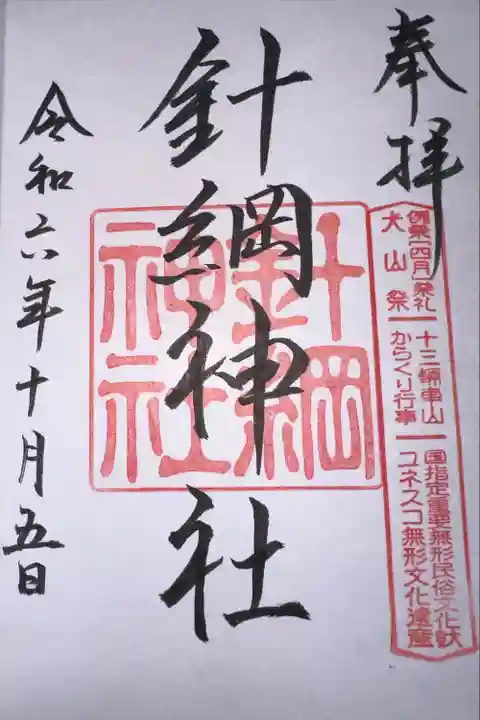 奉拝
例祭(四月)祭礼
犬山祭
十三輛車山
からくり行事
国指定重要無形民俗文化財
ユネスコ無形文化遺産
針綱神社
針綱
神社
令和六年十月五日